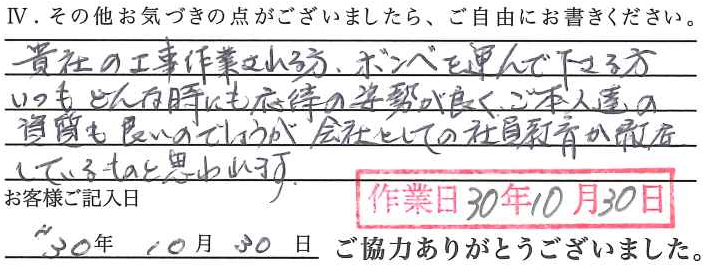 Ⅳ．その他お気づきの点がございましたら、ご自由にお書きください。
貴社の工事作業される方、ボンベを運んで下さる方
いつもどんな時にも応待の姿勢が良く、ご本人達の
資質も良いのでしょうが会社としての社員教育が徹底
しているものと思われます。
お客様ご記入日
作業日30年10月30日
H30年 10月 30日 ご協力ありがとうございました。